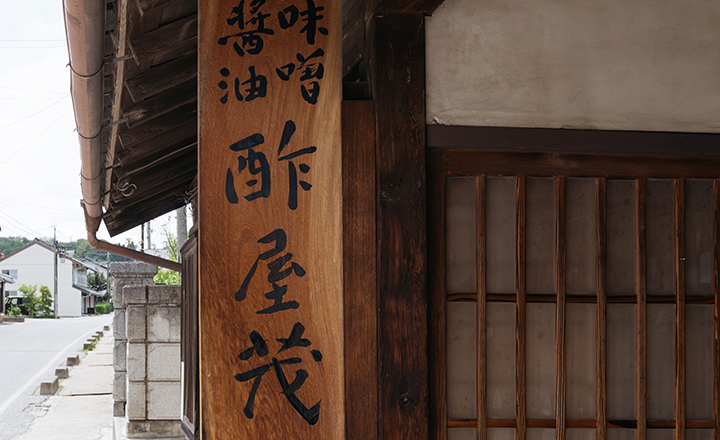 味噌
醤油
酢屋茂